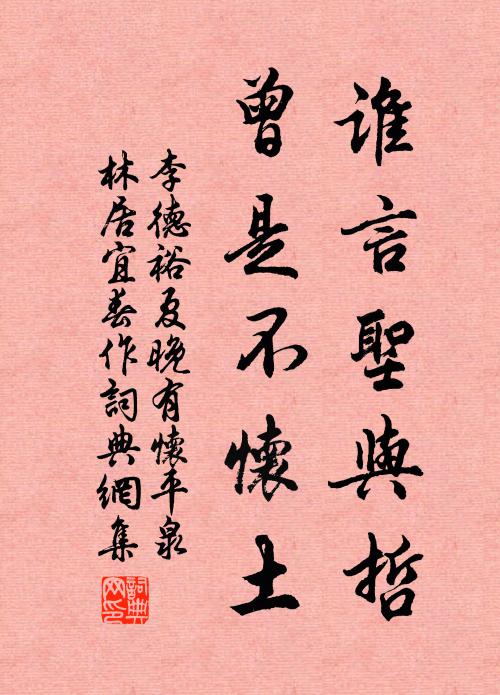 谁言聖與哲
曾是不懷土
李德裕夏晚有懷平泉
林居宜春作詞典網集
詞典網印